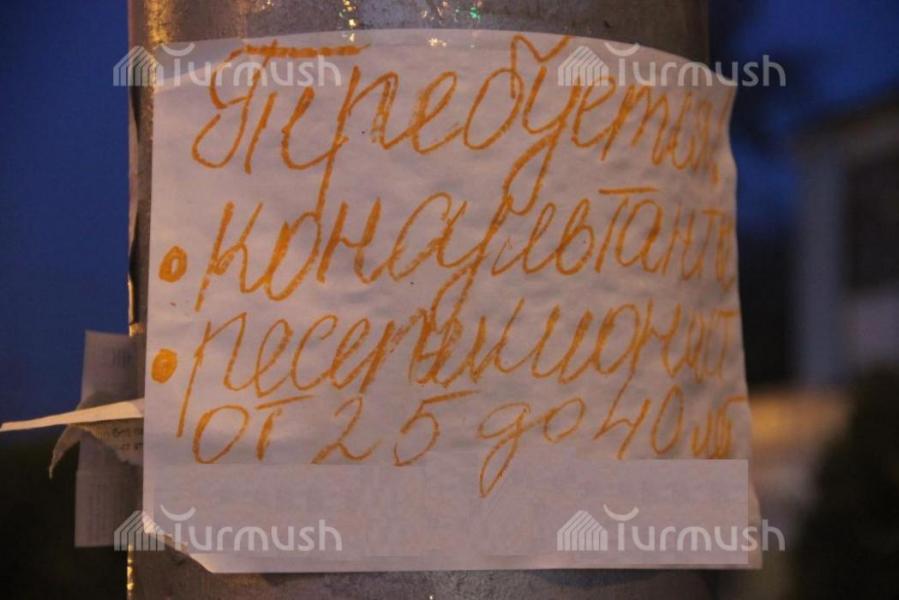 Turmush Turmush
Требуется
• консультанты
• ресепшионист
от 25 до 40 лет
Turmush Turmush